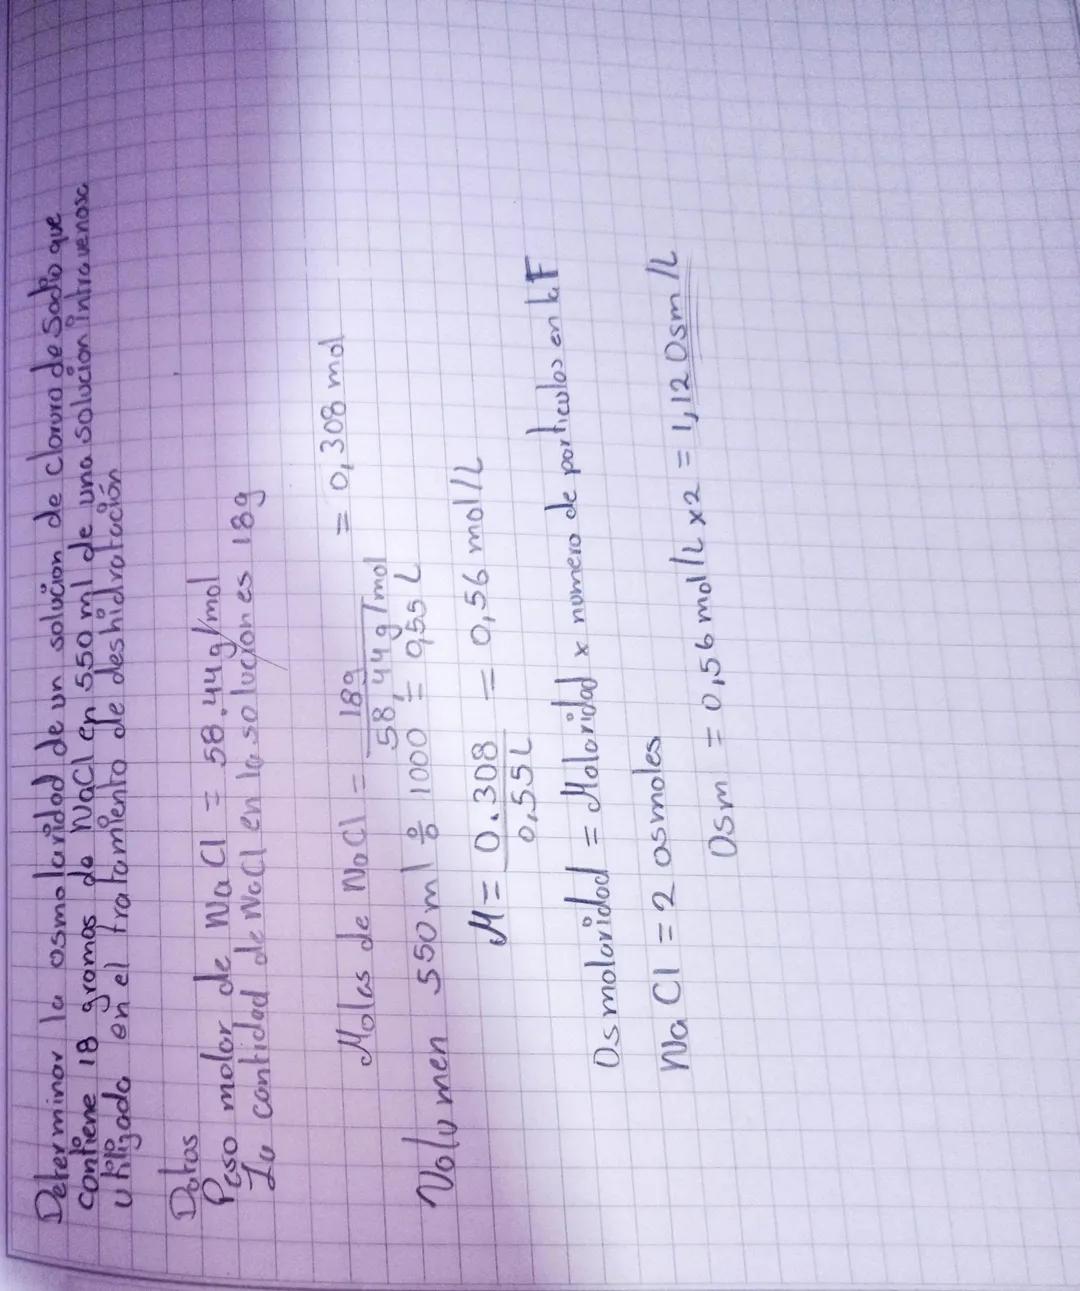 Determinar la osmolaridad de un solución de cloruro de Sodio que
contiene 18 gramos de NaCl en 550 ml de una solución intravenosa
utilizada en el tratamiento de deshidratación
Datos
Peso molar de NaCl = 58.44g/mol
La cantidad de NaCl en la soluciones 18g
Molas de NaCl = 18g / 58,44g/mol = 0,308 mol
Volumen 550 ml ÷ 1000 = 0,55 L
M = 0.308 / 0,55L = 0,56 mol/L
Osmolaridad = Molaridad x numero de particulas en la F
NaCl = 2 osmoles
Osm = 0,56 mol/L x 2 = 1,12 Osm/L